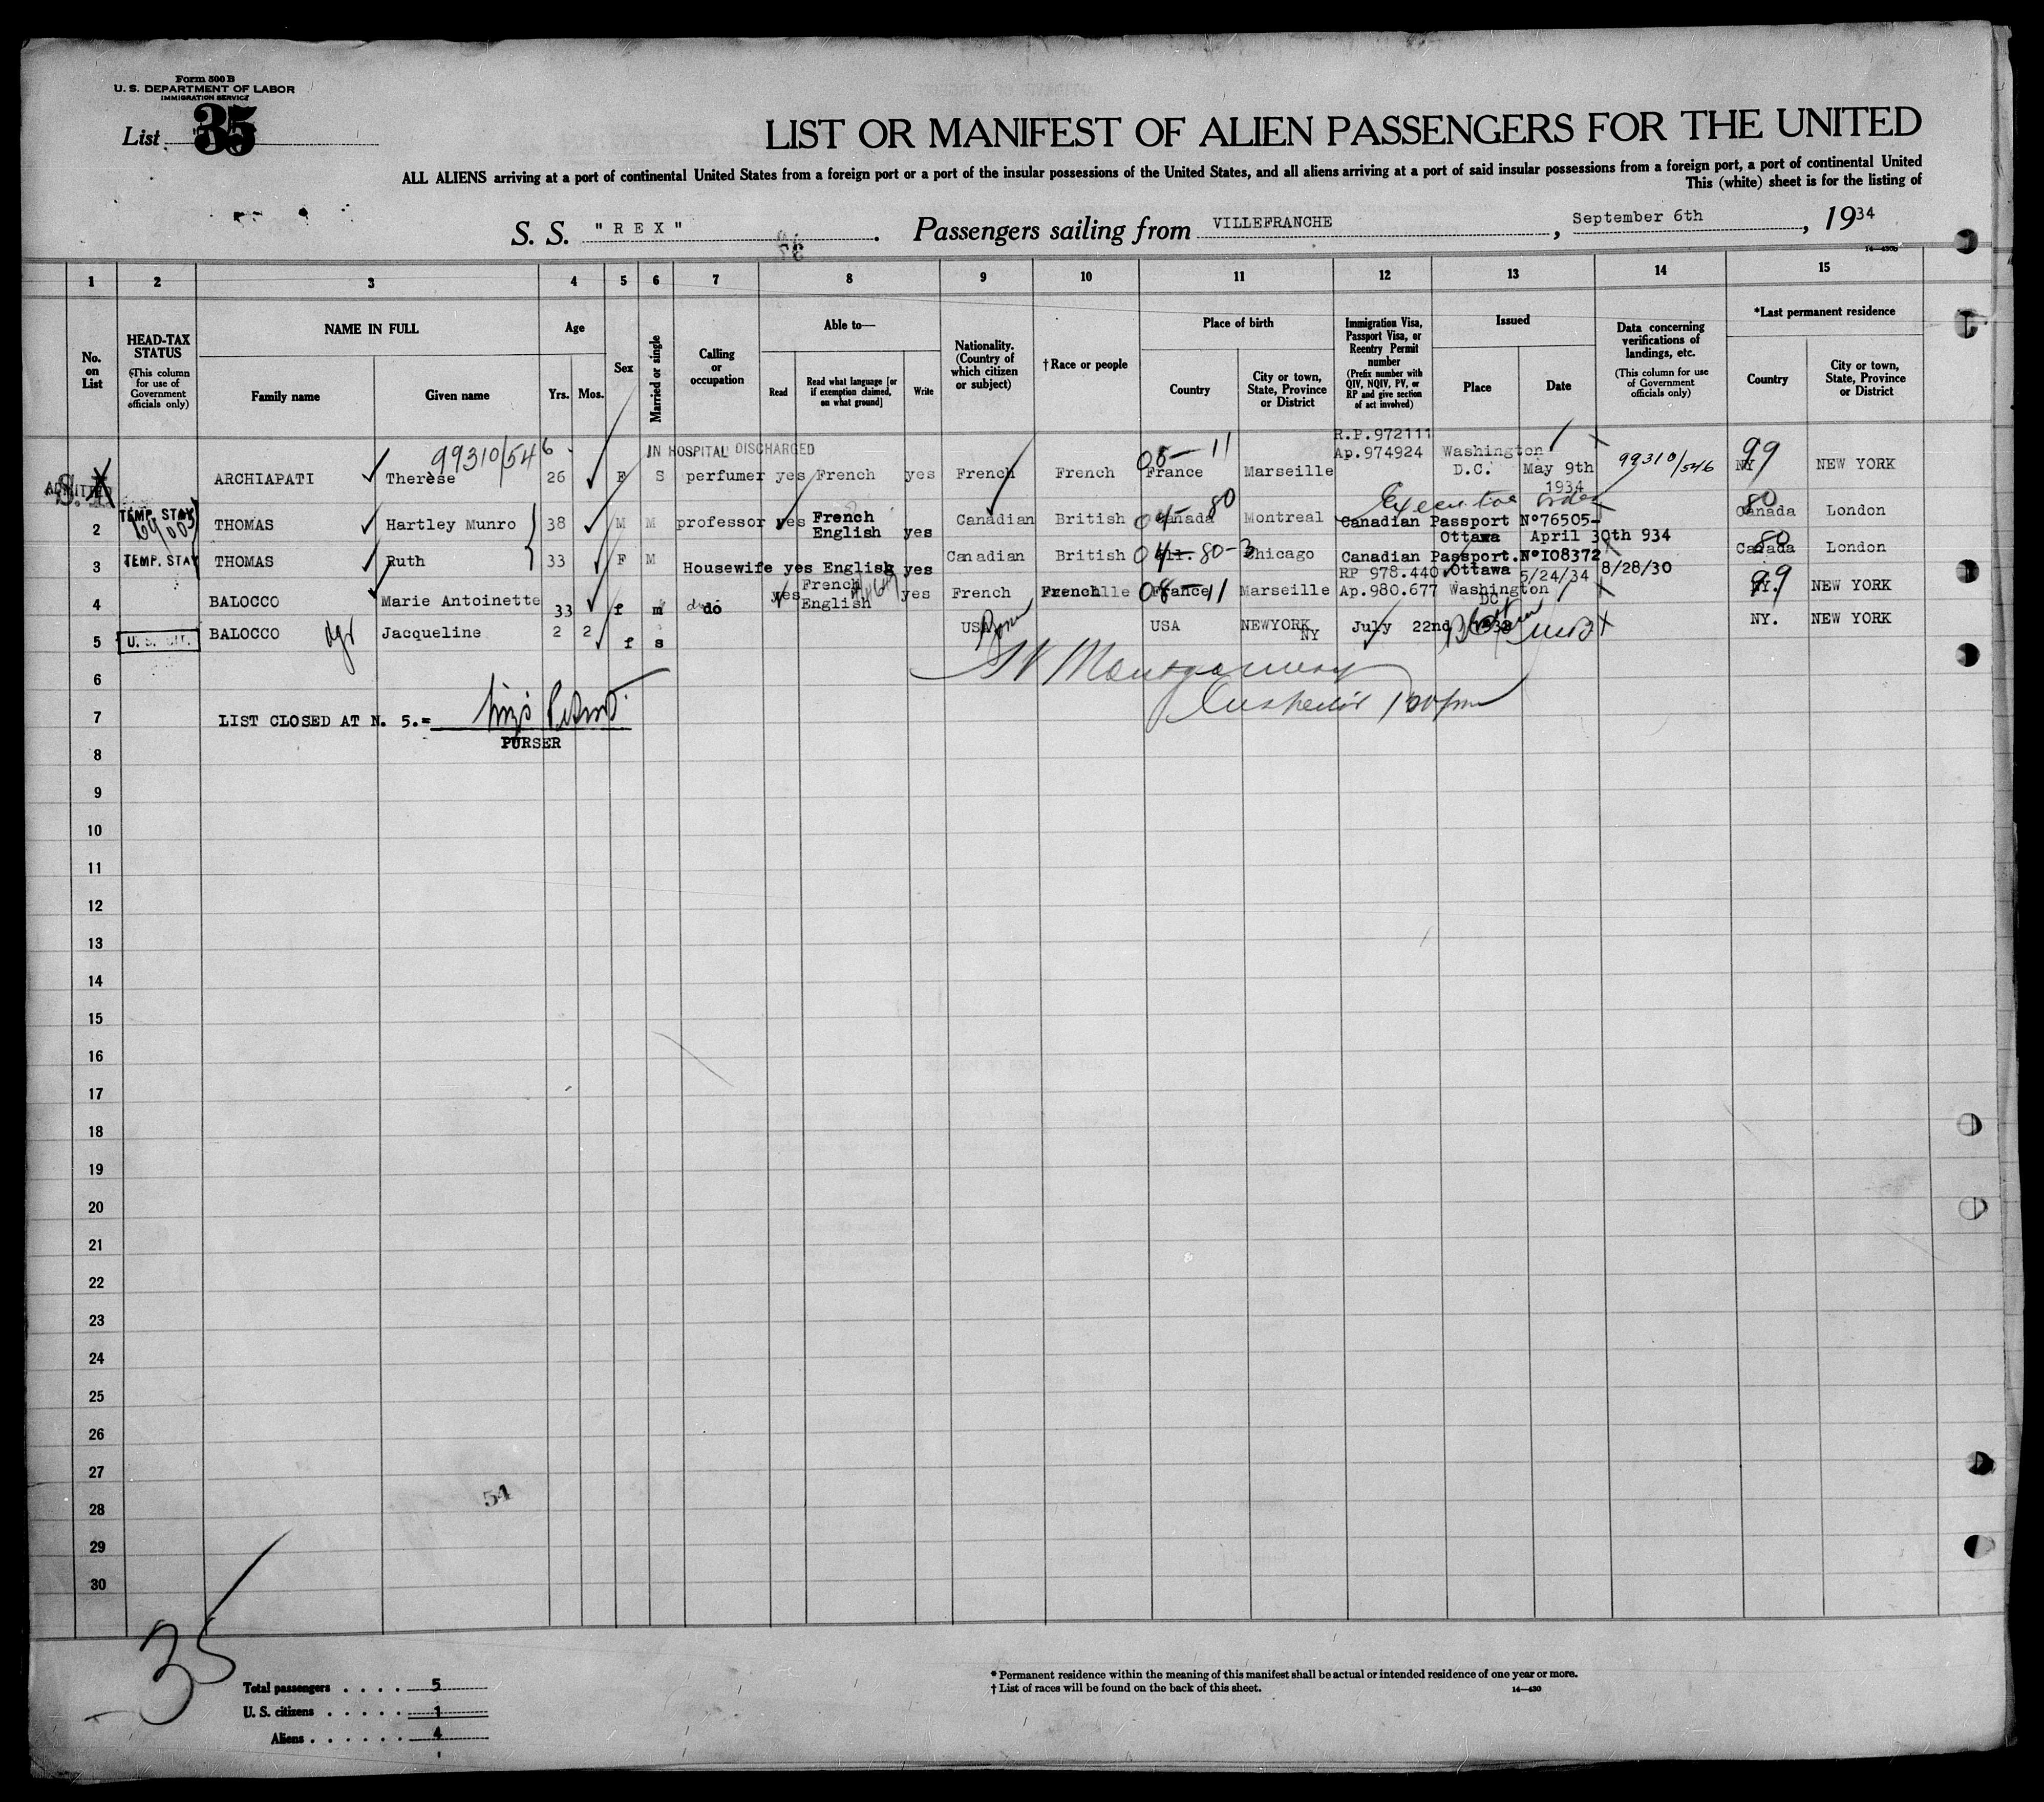 Form 500 B
U. S. DEPARTMENT OF LABOR
IMMIGRATION SERVICE
List 35
LIST OR MANIFEST OF ALIEN PASSENGERS FOR THE UNITED
ALL ALIENS arriving at a port of continental United States from a foreign port or a port of the insular possessions of the United States, and all aliens arriving at a port of said insular possessions from a foreign port, a port of continental United
This (white) sheet is for the listing of
S. S. "REX". Passengers sailing from VILLEFRANCHE, September 6th, 1934
37
14—430b
1 2 3 4 5 6 7 8 9 10 11 12 13 14 15
No. on List
HEAD-TAX STATUS
(This column for use of Government officials only)
NAME IN FULL
Family name
Given name
Age
Yrs. Mos.
Sex
Married or single
Calling or occupation
Able to—
Read
Read what language [or if exemption claimed, on what ground]
Write
Nationality. (Country of which citizen or subject)
† Race or people
Place of birth
Country
City or town, State, Province or District
Immigration Visa, Passport Visa, or Reentry Permit number
(Prefix number with QIV, NQIV, PV, or RP and give section of act involved)
Issued
Place
Date
Data concerning verifications of landings, etc.
(This column for use of Government officials only)
*Last permanent residence
Country
City or town, State, Province or District
99310/546 IN HOSPITAL DISCHARGED 08—11 R.P.972111 99
ADMITTED ARCHIAPATI Therèse 26 F S perfumer yes French yes French French France Marseille Ap.974924 Washington D.C. May 9th 1934 99310/546 NY NEW YORK
Executive order
2 TEMP. STAY THOMAS Hartley Munro 38 M M professor yes French English yes Canadian British 04—80 Canada Montreal Canadian Passport N°76505- Ottawa April 30th 934 80 Canada London
3 TEMP. STAY THOMAS Ruth 33 F M Housewife yes English yes Canadian British 04—80-3 Chicago Canadian Passport.N°108372 Ottawa 8/28/30 80 Canada London
4 BALOCCO Marie Antoinette 33 f m do yes French English yes French French 08—11 France Marseille RP 978.440 Ap.980.677 Washington DC 5/24/34 99 NY. NEW YORK
5 U. S. CIT. BALOCCO Jacqueline 2 2 f s USA USA NEWYORK NY July 22nd NY. NEW YORK
6
Montgomery
7 LIST CLOSED AT N. 5.=
PURSER
8
9
10
11
12
13
14
15
16
17
18
19
20
21
22
23
24
25
26
27
28
54
29
30
35
Total passengers . . . . 5
U. S. citizens . . . . . 1
Aliens . . . . . . 4
* Permanent residence within the meaning of this manifest shall be actual or intended residence of one year or more.
† List of races will be found on the back of this sheet.
14—430